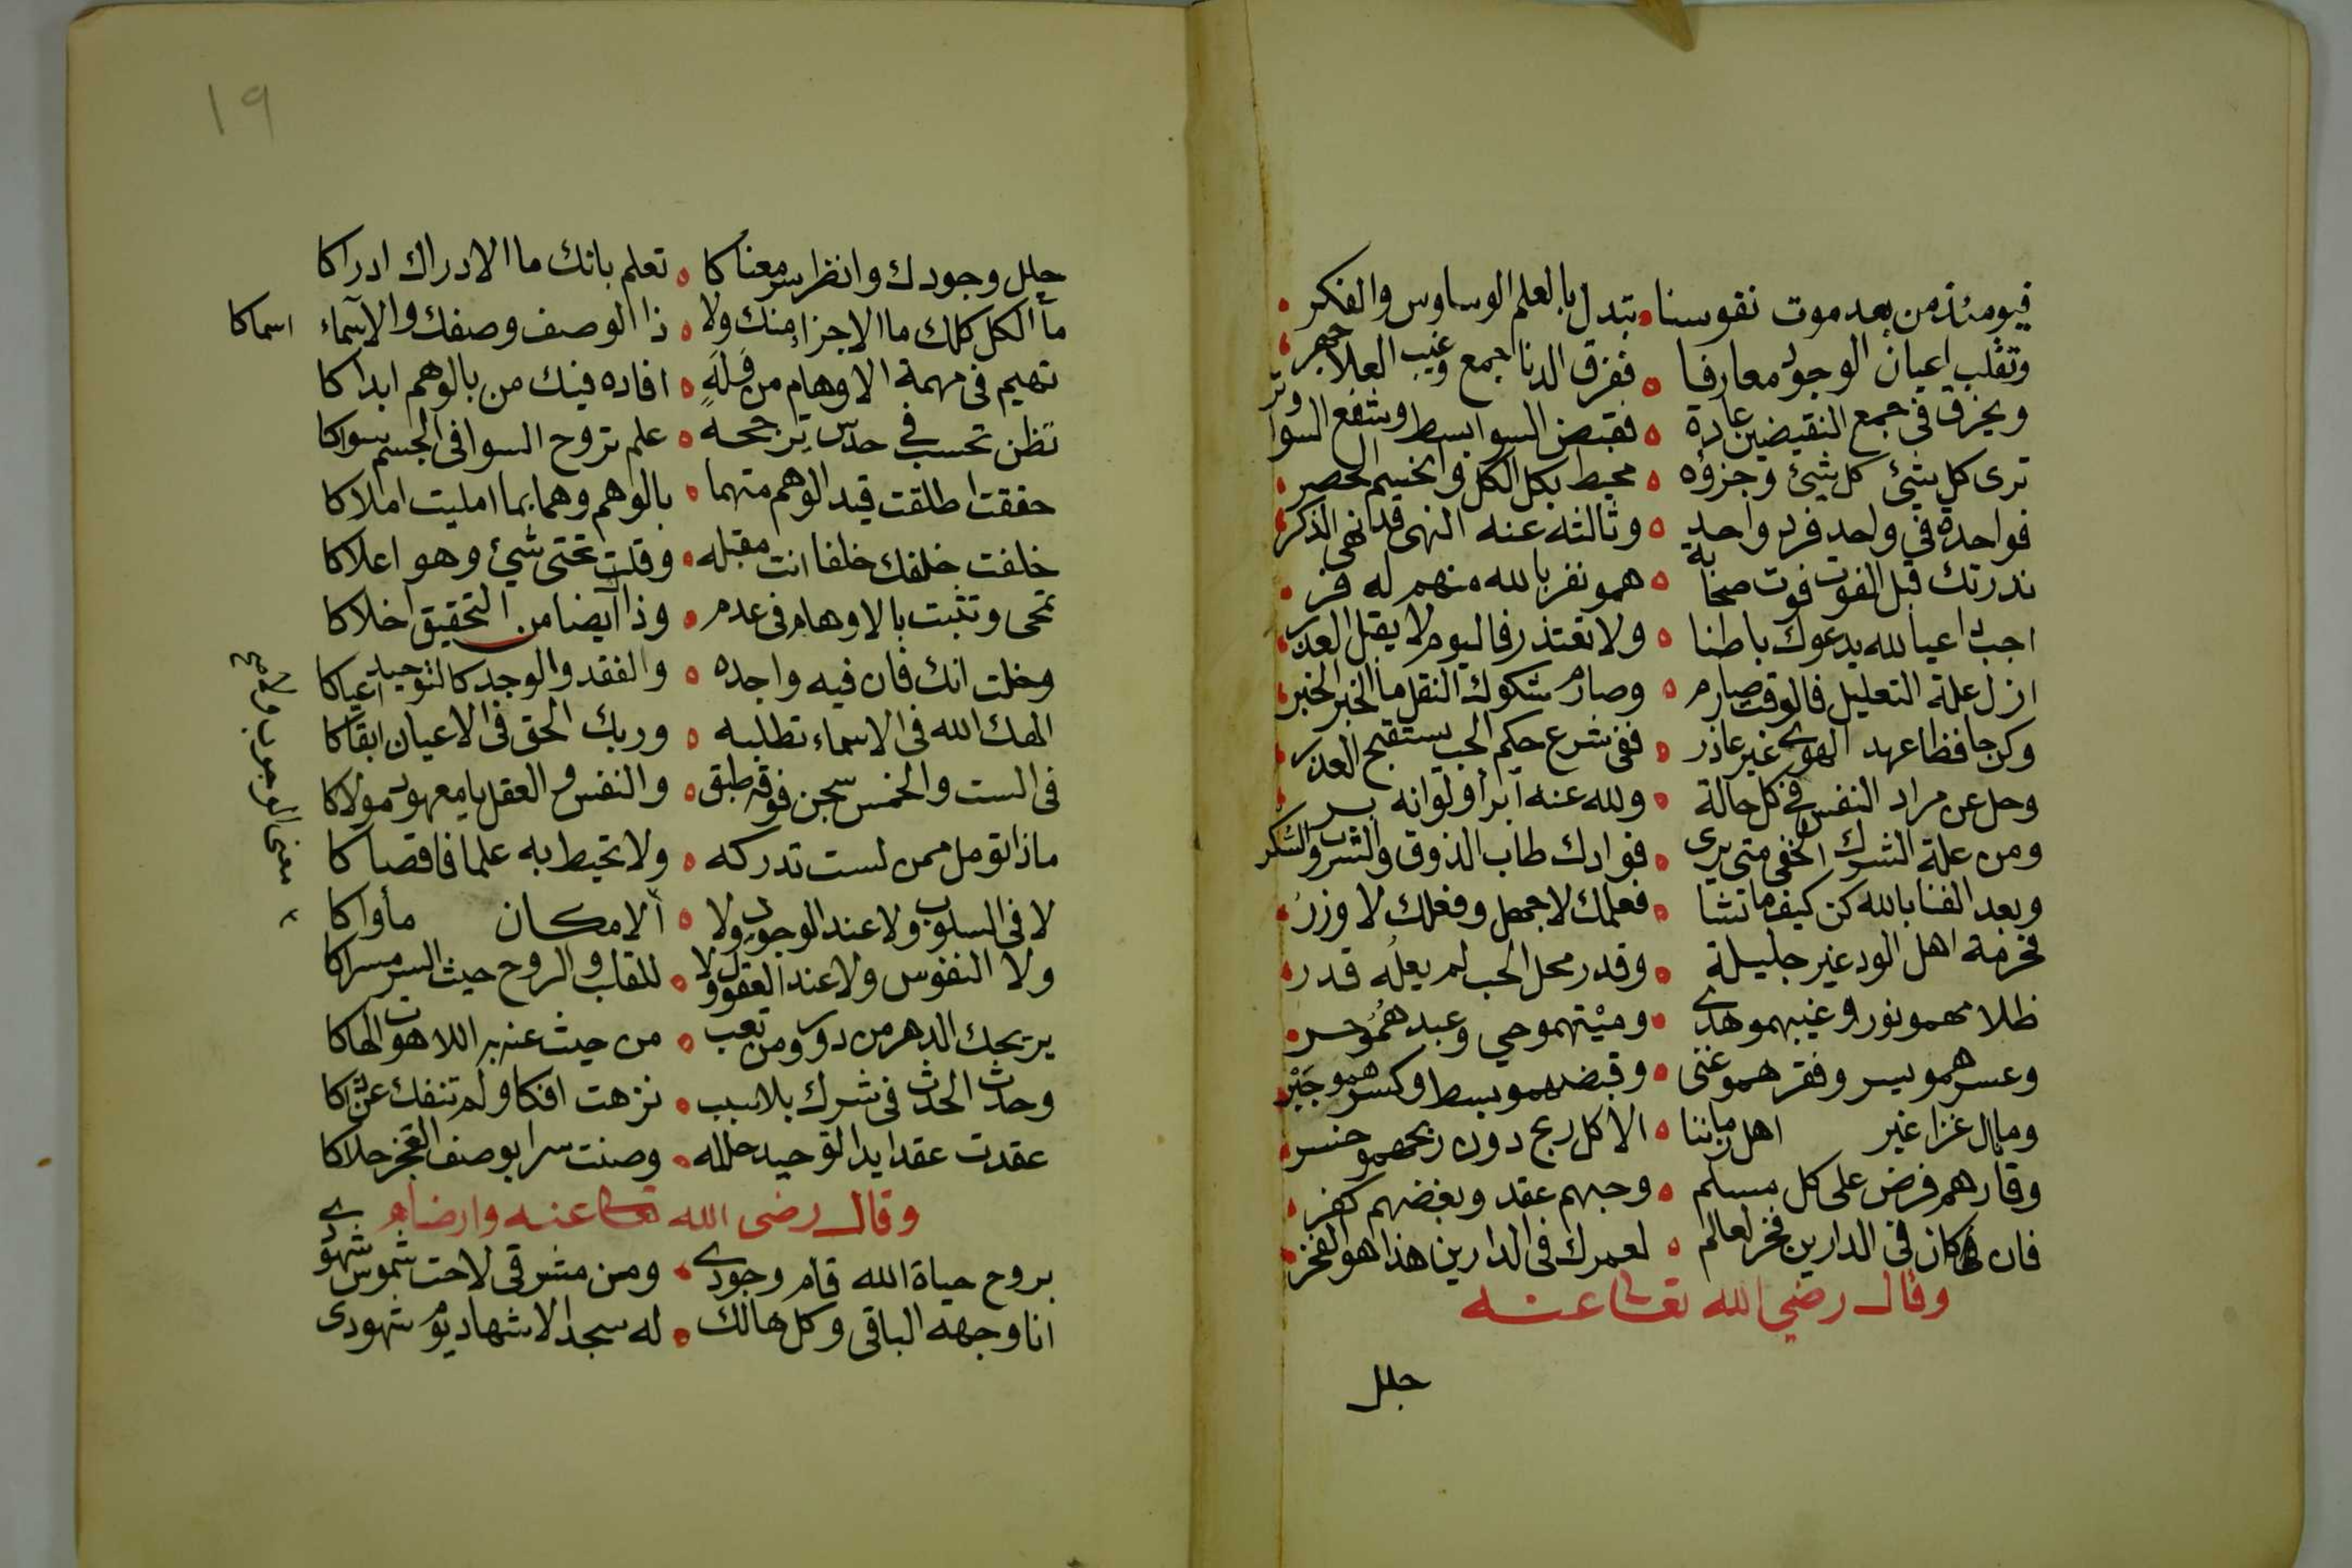 فيومئذ من بعد موت نفوسنا • تبدل بالعلم الوساوس والفكر
وتقلب اعيان الوجود معارفا • ففرق الدنا جمع وغيب العلا جهر
ويخرق في جمع النقيضين عادة • فقبض السوا بسط وشفع السوا وتر
ترى كل شيئ كل شيئ وجزؤه • محيط بكل الكل
فواحدة في واحد فرد واحد • وثالثه عنه النهى قد نهى الذكر
ندرتك قبل الفوت فوت صحابة • همو نفر بالله منهم له فر
اجب داعيا لله يدعوك باطنا • ولا تعتذر فاليوم لا يقبل العذر
ازل علة التعليل فالوقت صارم • وصارم شكوك النقل ما الخبر الخبر
وكن حافظا عهد الهوى غير عاذر • ففي شرع حكم الحب يستقبح العذر
وحل عن مراد النفس في كل حالة • ولله عنه ابرأ ولو انه بر
ومن علة الشرك الخفي متى يرى • فوادك طاب الذوق والشرب والشكر
وبعد الفنا بالله كن كيفما تشا • فعلمك لا جهل وفعلك لا وزر
فخرمة اهل الود غير جليلة • وقدر محل الحب لم يعله قدر
ظلامهمو نور وغيبهمو هدى • وميتهمو حي وعبدهمو حر
وعسرهمو يسر وفقرهمو غنى • وقبضهمو بسط وكسرهمو جبر
ومال غزا غير اهل زماننا • الا كل ربح دون ربحهمو خسر
وقارهم فرض على كل مسلم • وحبهم عقد وبغضهم كفر
فان كان في الدارين فخر لعالم • لعمرك في الدارين هذا هو الفخر
وقال رضي الله تعالى عنه
حلل
١٩
حلل وجودك وانظر سر معناكا • تعلم بانك ما الادراك ادراكا
ما الكل كلك ما الاجزا منك ولا • ذا الوصف وصفك والاسماء اسماكا
تهيم في مهمة الاوهام من وله • افاده فيك من بالوهم ابداكا
تظن تحسب في حدس ترجحه • علم تروح السوا في الجسم سواكا
حققت اطلقت قيد الوهم متهما • بالوهم وهما بما امليت املاكا
خلفت خلفك خلفا انت مقبله • وقلت تحتى شيئ وهو اعلاكا
تمحى وتثبت بالاوهام في عدم • وذا ايضا من التحقيق اخلاكا
وخلت انك فان فيه واجده • والفقد والوجد كالتوحيد اعياكا
الهك الله في الاسماء تطلبه • وربك الحق في الاعيان ابقاكا
في الست والخمس سجن فوقه طبق • والنفس والعقل يا معهود مولاكا
ماذا تومل ممن لست تدركه • ولا تحيط به علما فاقصاكا
لا في السلوب ولا عند الوجود ولا • الامكان مأواكا
ولا النفوس ولا عند العقول ولا • للقلب والروح حيث السر مسراكا
يريحك الدهر من دور ومن تعب • من حيث عنه به اللاهوت الهاكا
وحدث الحدث في شرك بلا سبب • نزهت افكا ولم تنفك
عقدت عقدا يد التوحيد حلله • وصنت سرا بوصف العجز حلاكا
وقال رضى الله تعالى عنه وارضاه
بروح حياة الله قام وجودي • ومن مشرقي لاحت شموس شهودي
انا وجهه الباقي وكل هالك • له سجد الاشهاد يوم شهودى